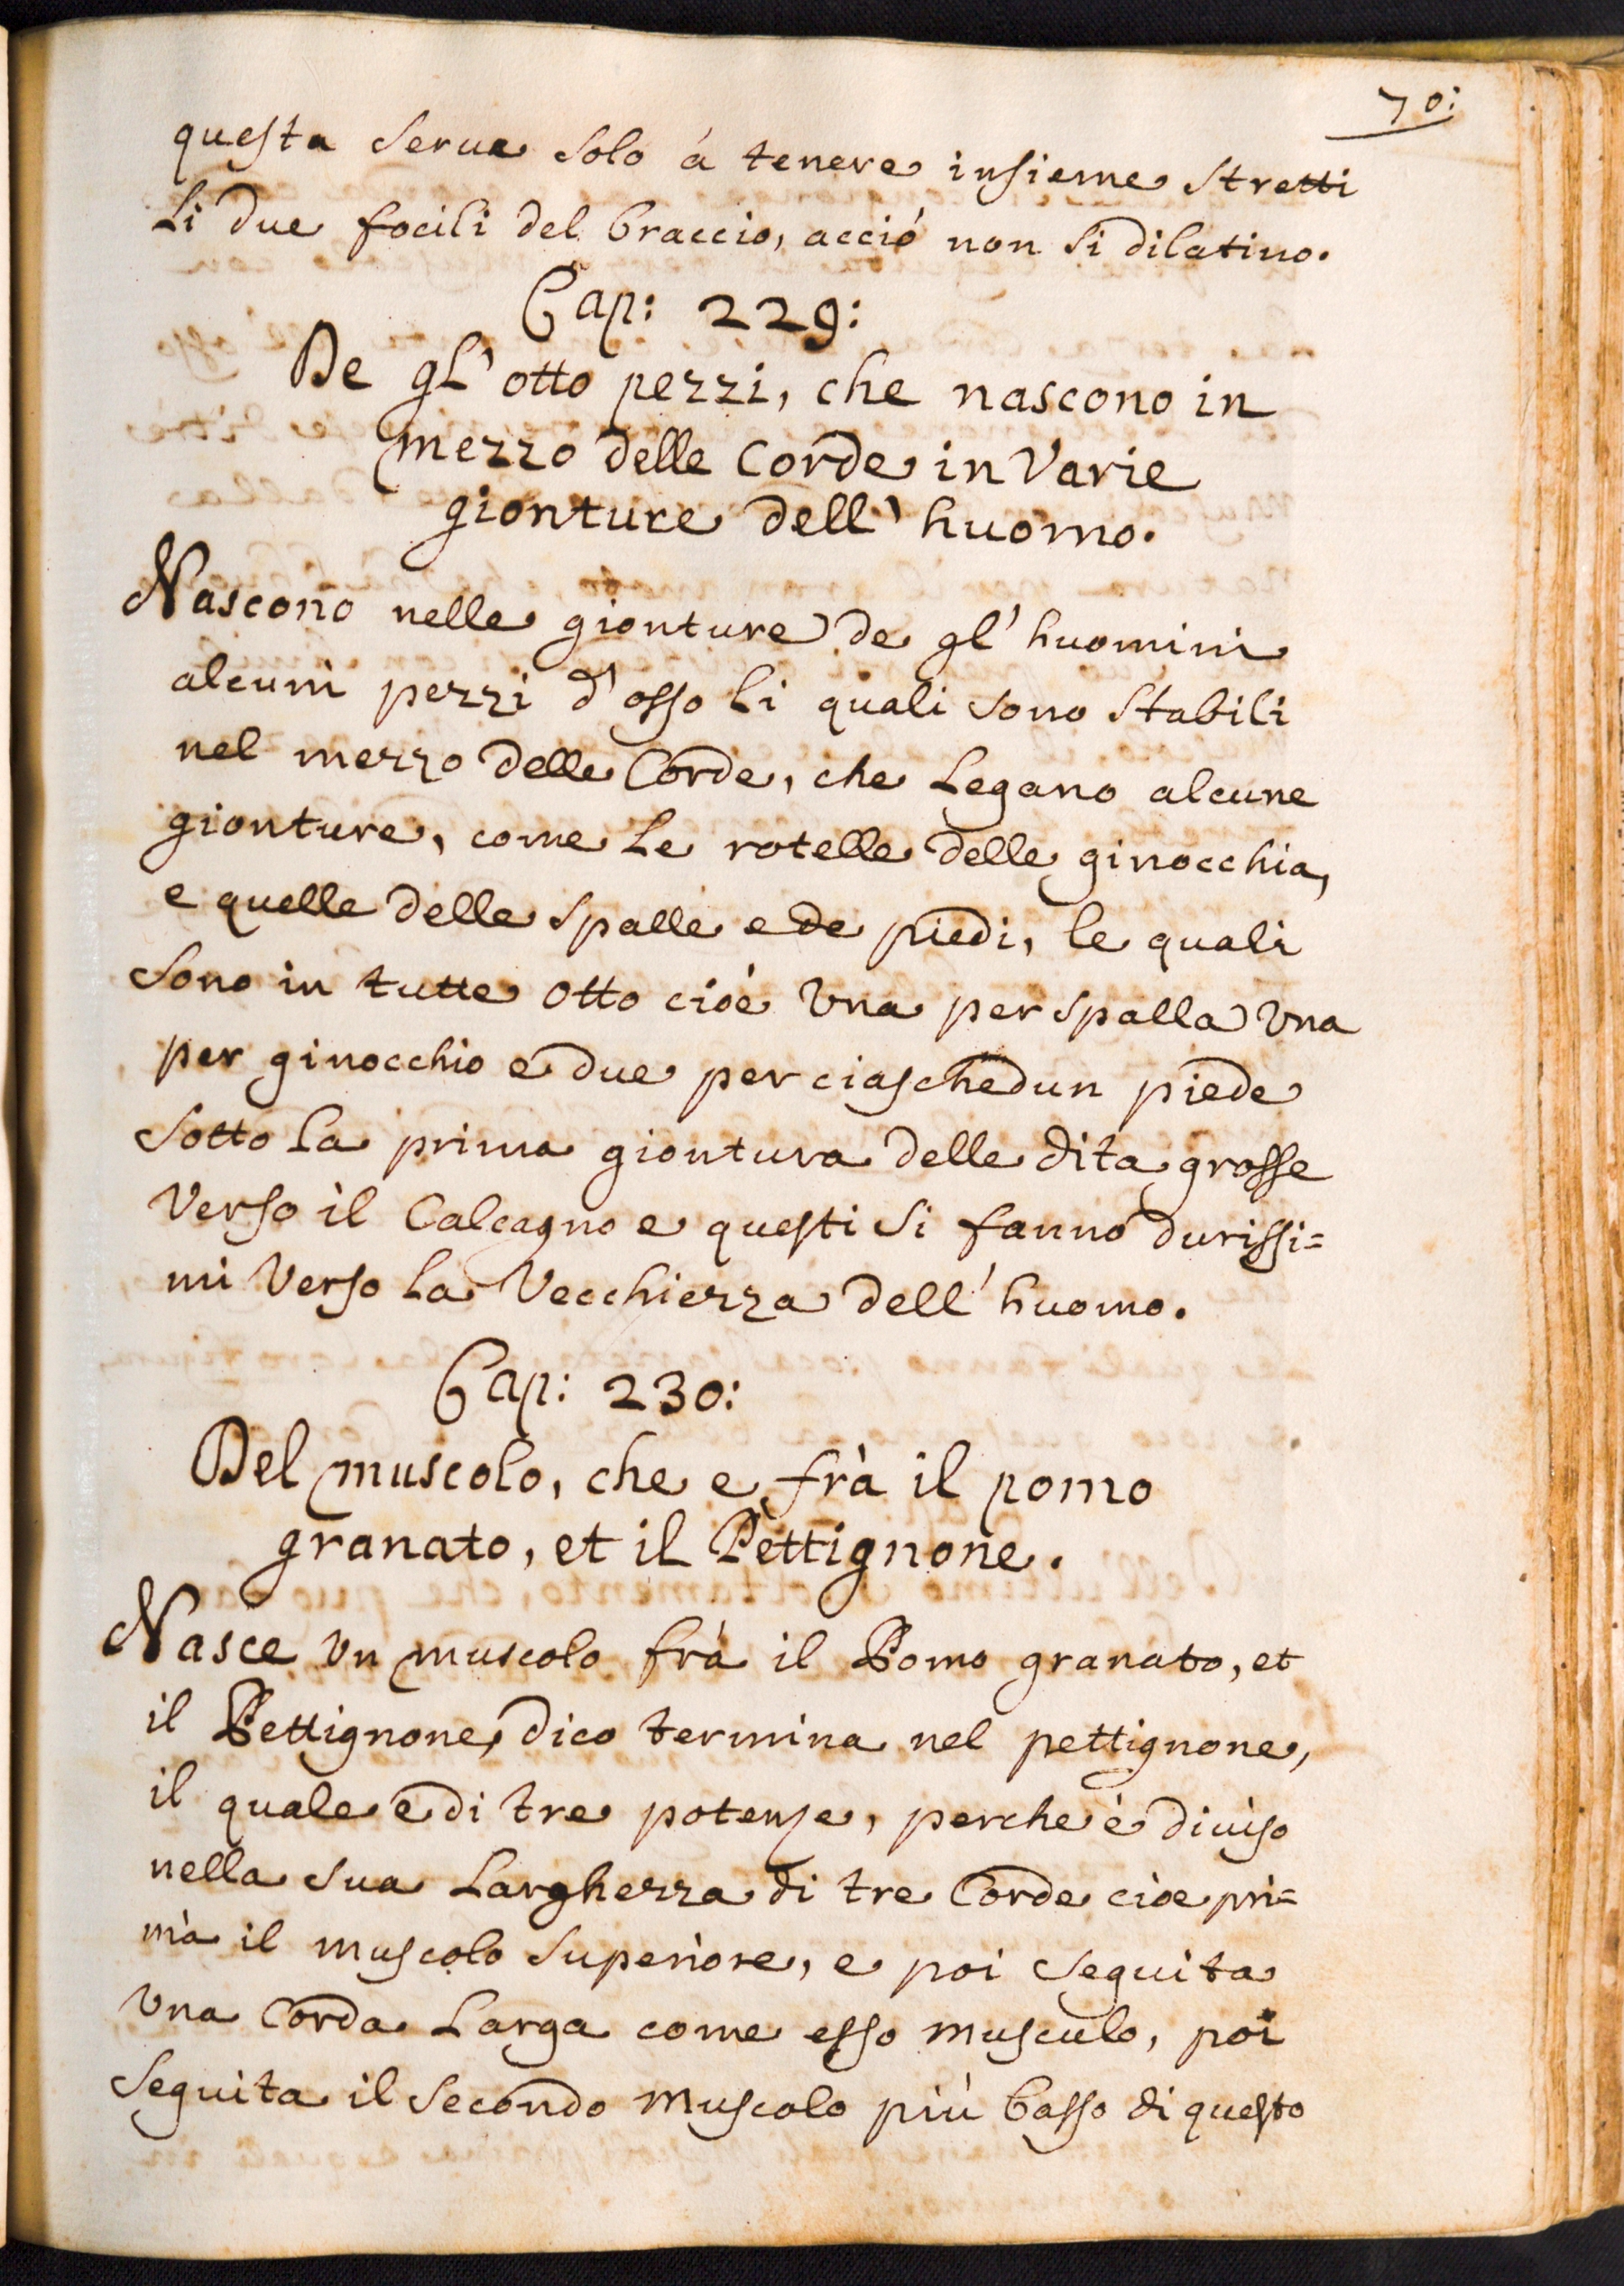 70:
questa serue solo à tenere insieme stretti
li due focili del braccio, acciò non si dilatino.
Cap: 229:
De gl' otto pezzi, che nascono in
mezzo delle corde in varie
gionture dell' huomo.
Nascono nelle gionture de gl' huomini
alcuni pezzi d' osso li quali sono stabili
nel mezzo delle Corde, che legano alcune
gionture, come le rotelle delle ginocchia,
e quelle delle spalle e de piedi, le quali
sono in tutte otto cioè vna per spalla vna
per ginocchio e due per ciaschedun piede
sotto la prima giontura delle dita grosse
verso il Calcagno e questi si fanno durissi=
mi verso la vecchiezza dell' huomo.
Cap: 230:
Del muscolo, che e frà il pomo
granato, et il Pettignone.
Nasce vn muscolo frà il Pomo granato, et
il Pettignone, dico termina nel pettignone,
il quale è di tre potenze, perche è diuiso
nella sua larghezza di tre Corde cioe pri=
ma il muscolo superiore, e poi seguita
vna Corda larga come esso musculo, poi
seguita il secondo muscolo più basso di questo